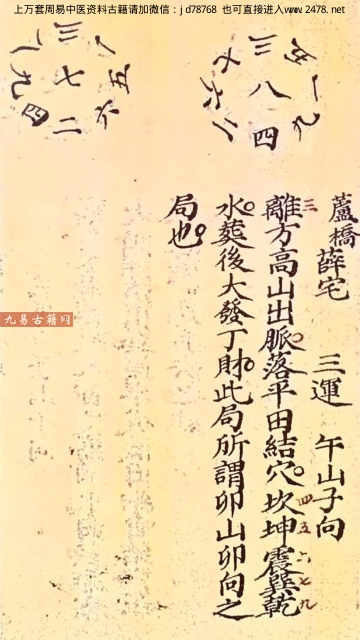 上万套周易中医资料古籍请加微信：jd78768 也可直接进入www.2478.net
蘆橋薛宅 三運 午山子向
三
離方高山出脈落平田結穴坎坤震巽乾
四五六七九
水葬後大發丁財此局所謂卯山卯向之
局也
三 八 四 一 九 六 二
三 七 二 一 五 六 四 九 八
九易古籍网